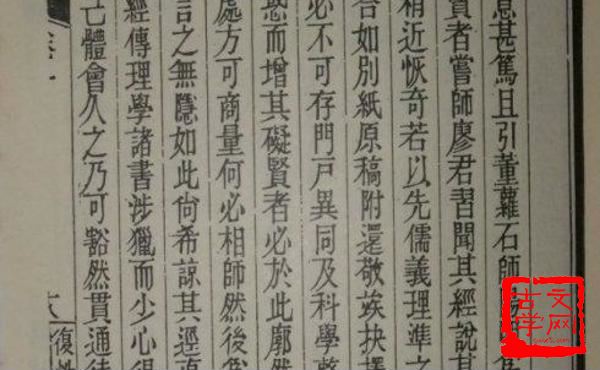 息甚篤且引董蘿石師
賢者嘗師廖君習聞其經說其
稍近恢奇若以先儒義理準之
答如別紙原稿附還敬竢抉擇
必不可存門戶異同及科學
惑而增其礙賢者必於此廓然
處方可商量何必相師然後
言之無隱如此尙希諒其逕直
經傳理學諸書涉獵而少心得
己體會久之乃可豁然貫通
卷一
六
復性
古文
学网